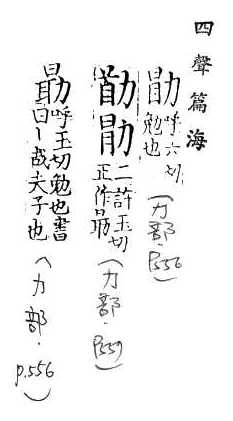 四聲篇海
呼六切勉也(力部.P.556)
二許玉切正作勗(力部.P559)
勗呼玉切勉也書曰丨哉夫子也(力部.p.556)